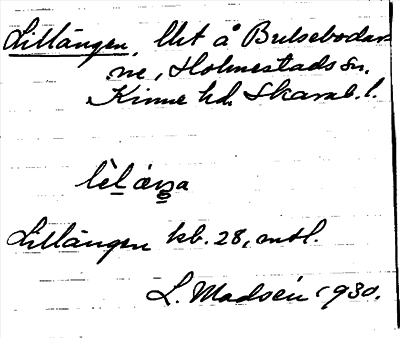 Lillängen, lht å Bulsebodar-
ne, Holmestads sn.
Kinne hd. Skarab. l.
lìlæŋa
Lillängen kb. 28, mtl.
L. Madsén 1930.